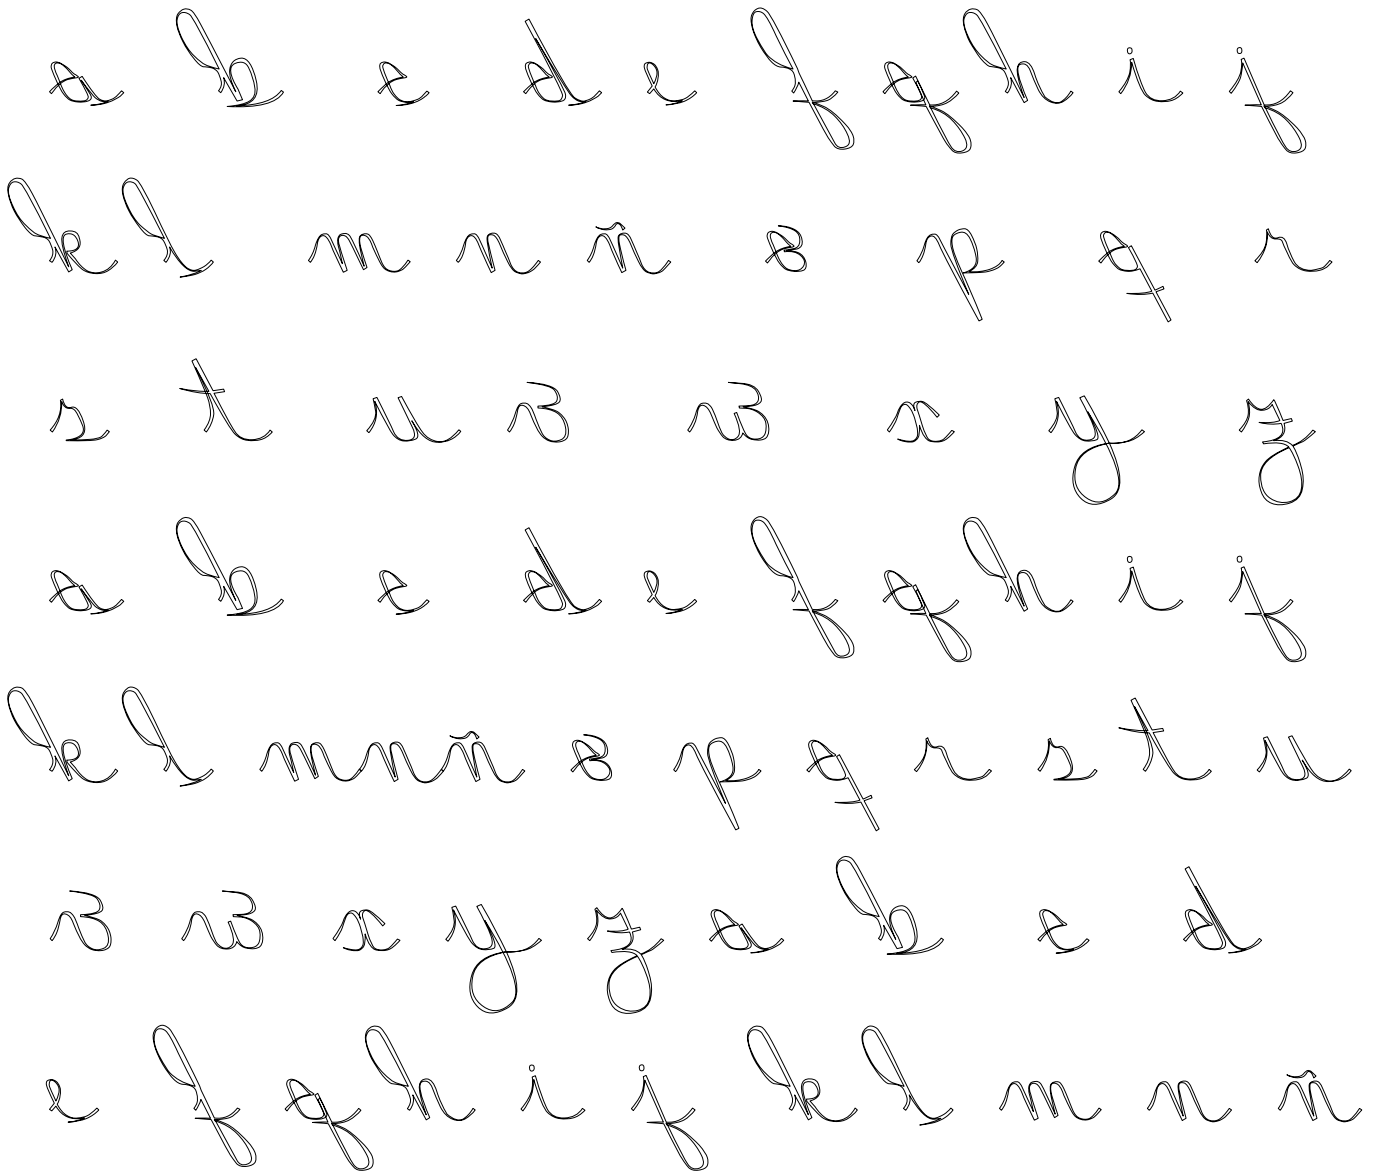 a b c d e f g h i j
k l m n ñ o p q r
s t u v w x y z
a b c d e f g h i j
k l mnñ o p q r s t u
v w x y z a b c d
e f g h i j k l m n ñ